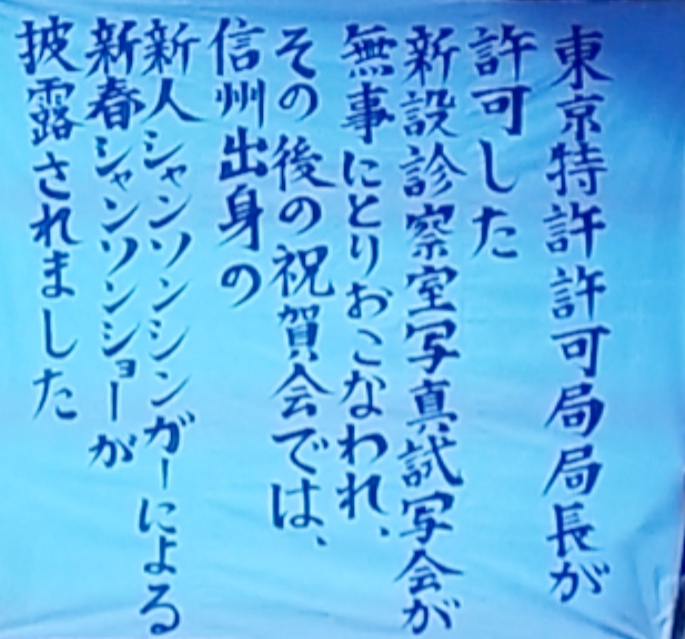 東京特許許可局局長が
許可した
新設診察室写真試写会が
無事にとりおこなわれ、
その後の祝賀会では、
信州出身の
新人シャンソンシンガーによる
新春シャンソンショーが
披露されました